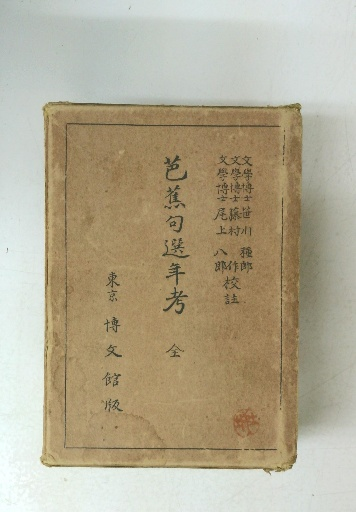 文學博士 笹川 種郎
文學博士 藤村 作
文學博士 尾上 八郎
校註
芭蕉句選年考 全
東京 博文館版